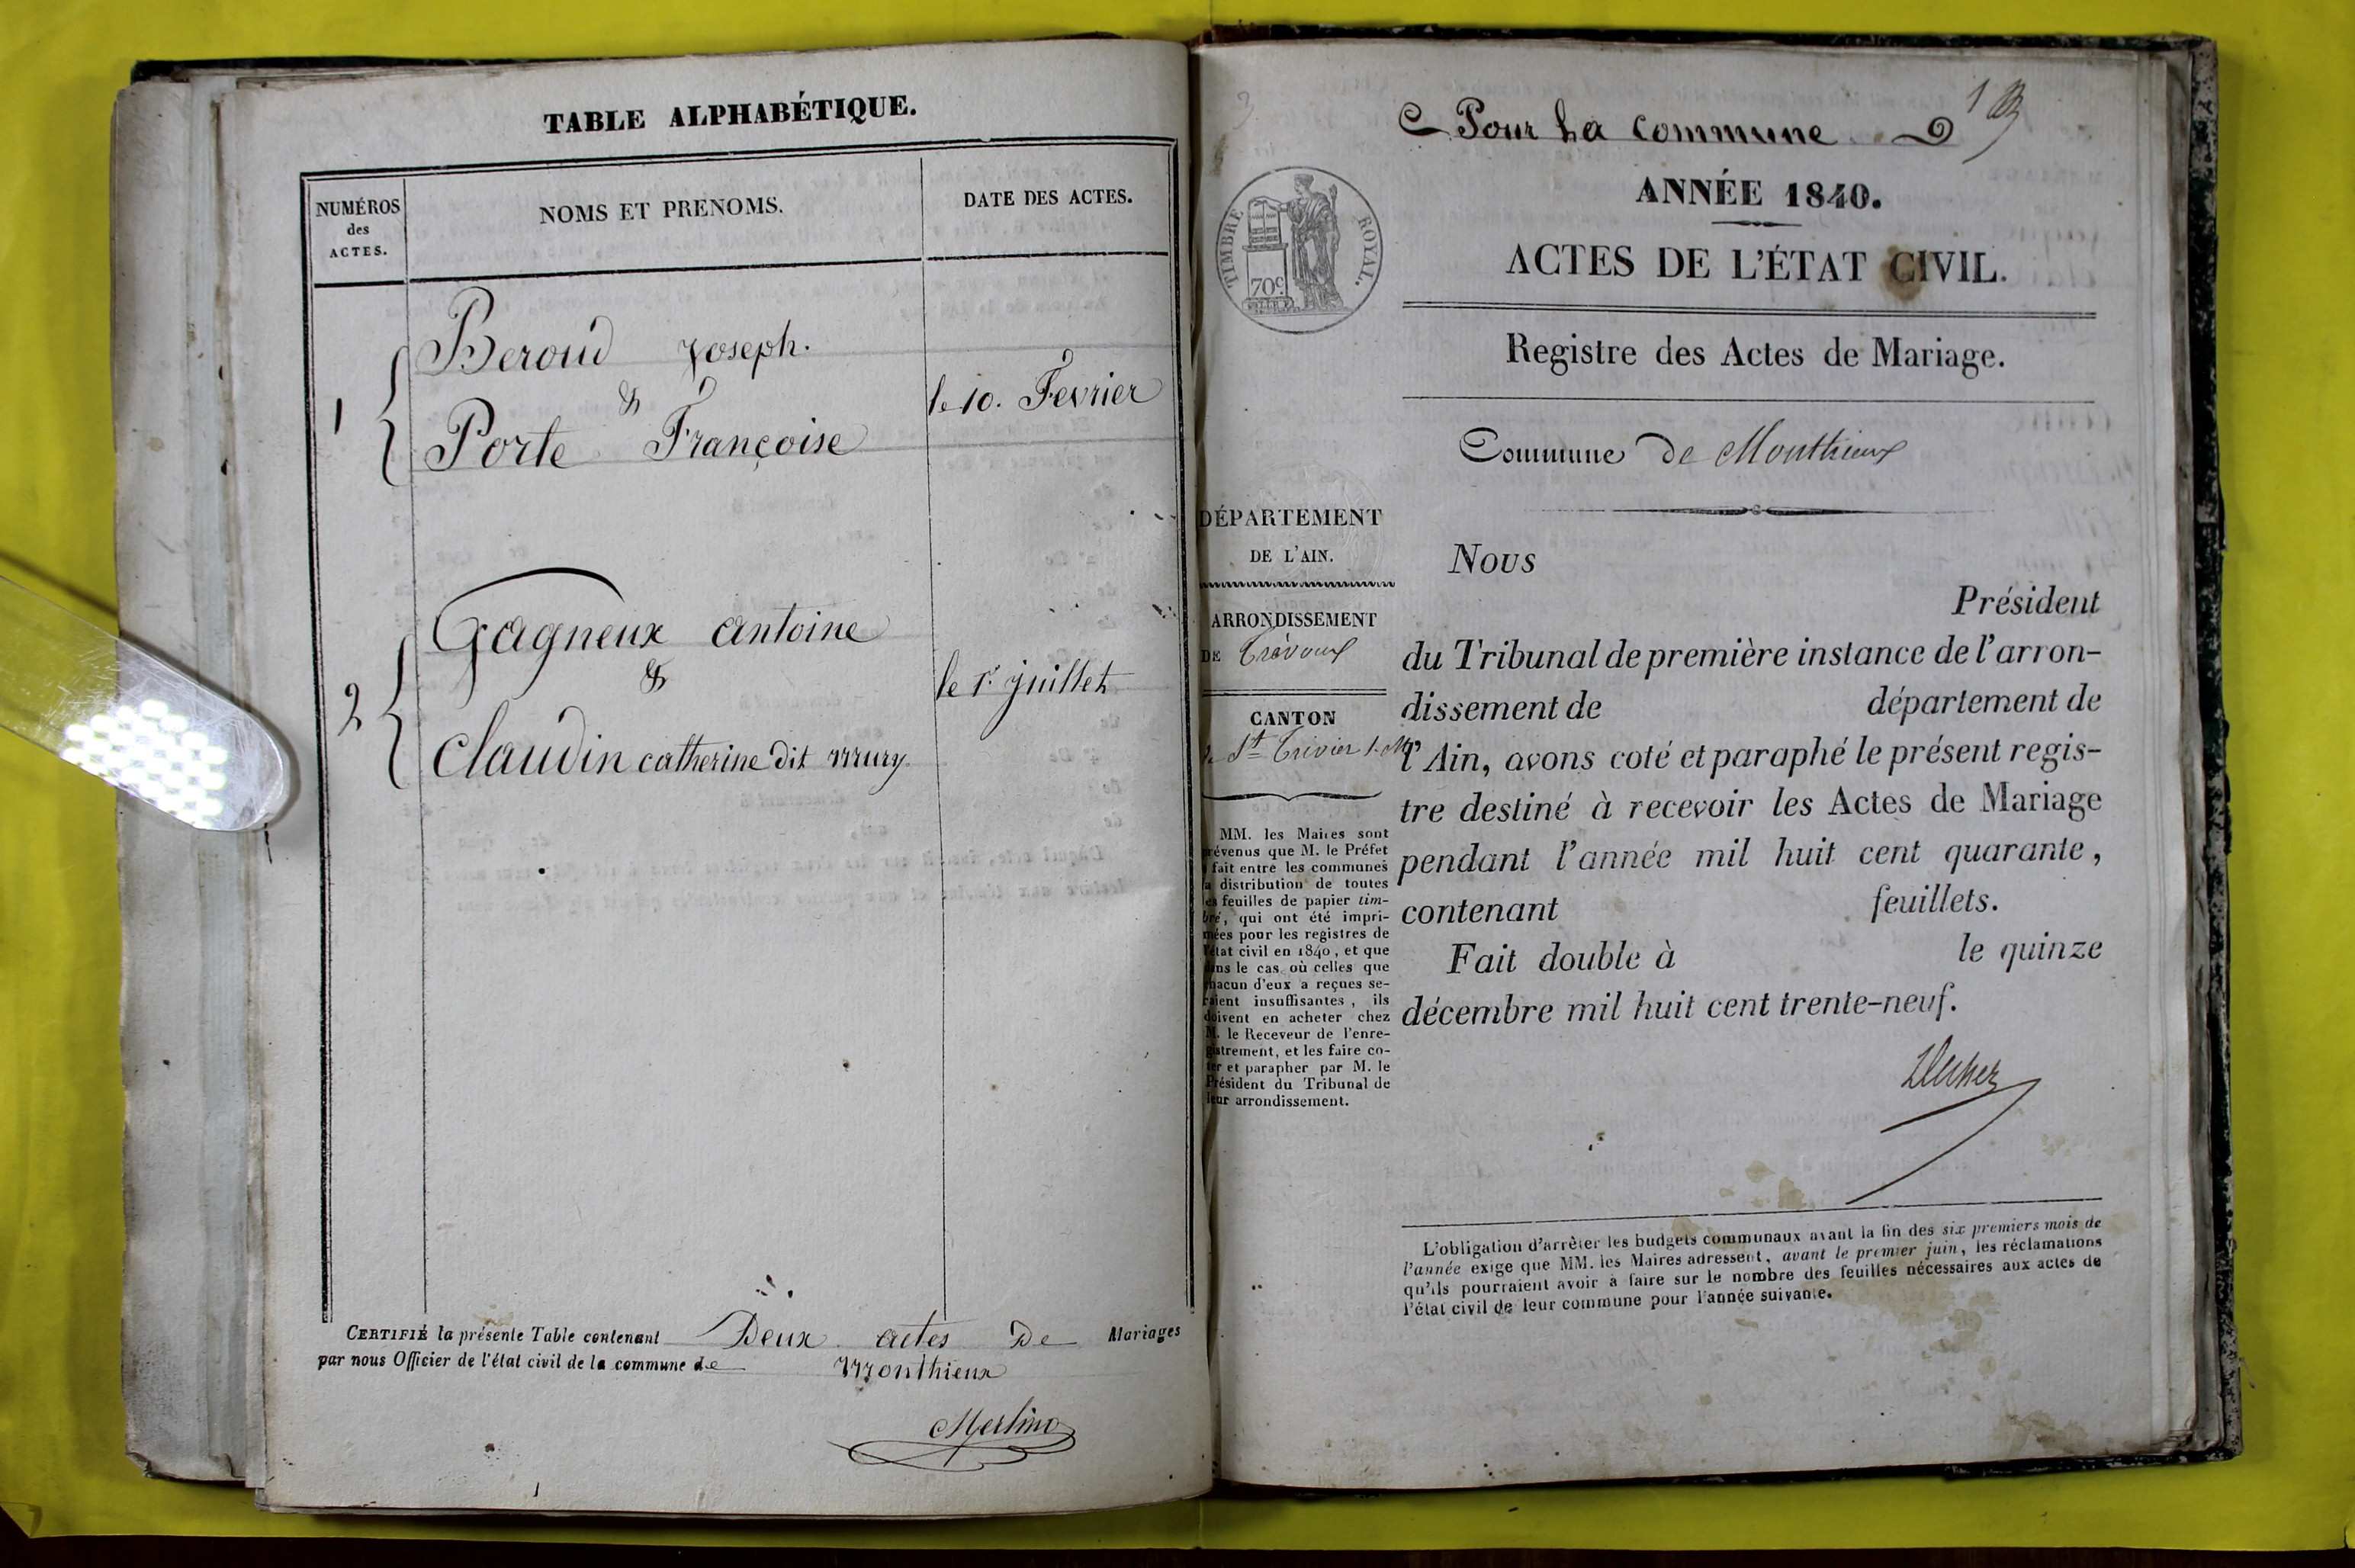 TABLE ALPHABÉTIQUE.
NUMÉROS
des
ACTES.
NOMS ET PRENOMS.
DATE DES ACTES.
1
Beroud Joseph.
&
Porte Françoise
le 10. Fevrier
2
Gagneux antoine
&
Claudin catherine dit mury
le 1r juillet
CERTIFIÉ la présente Table contenant Deux actes De Mariages
par nous Officier de l'état civil de la commune de Monthieux
Merlino
1
Pour La commune
ANNÉE 1840.
TIMBRE ROYAL.
70c
ACTES DE L'ÉTAT CIVIL.
Registre des Actes de Mariage.
Commune de Monthieux
DÉPARTEMENT
DE L'AIN.
ARRONDISSEMENT
DE Trévoux
CANTON
de St Trivier s. M
MM. les Maires sont
prévenus que M. le Préfet
a fait entre les communes
la distribution de toutes
les feuilles de papier tim-
bré, qui ont été impri-
mées pour les registres de
l'état civil en 1840, et que
dans le cas où celles que
chacun d'eux a reçues se-
raient insuffisantes, ils
doivent en acheter chez
M. le Receveur de l'enre-
gistrement, et les faire co-
ter et parapher par M. le
Président du Tribunal de
leur arrondissement.
Nous
Président
du Tribunal de première instance de l'arron-
dissement de département de
l'Ain, avons coté et paraphé le présent regis-
tre destiné à recevoir les Actes de Mariage
pendant l'année mil huit cent quarante,
contenant feuillets.
Fait double à le quinze
décembre mil huit cent trente-neuf.
L'obligation d'arrêter les budgets communaux avant la fin des six premiers mois de
l'année exige que MM. les Maires adressent, avant le premier juin, les réclamations
qu'ils pourraient avoir à faire sur le nombre des feuilles nécessaires aux actes de
l'état civil de leur commune pour l'année suivante.